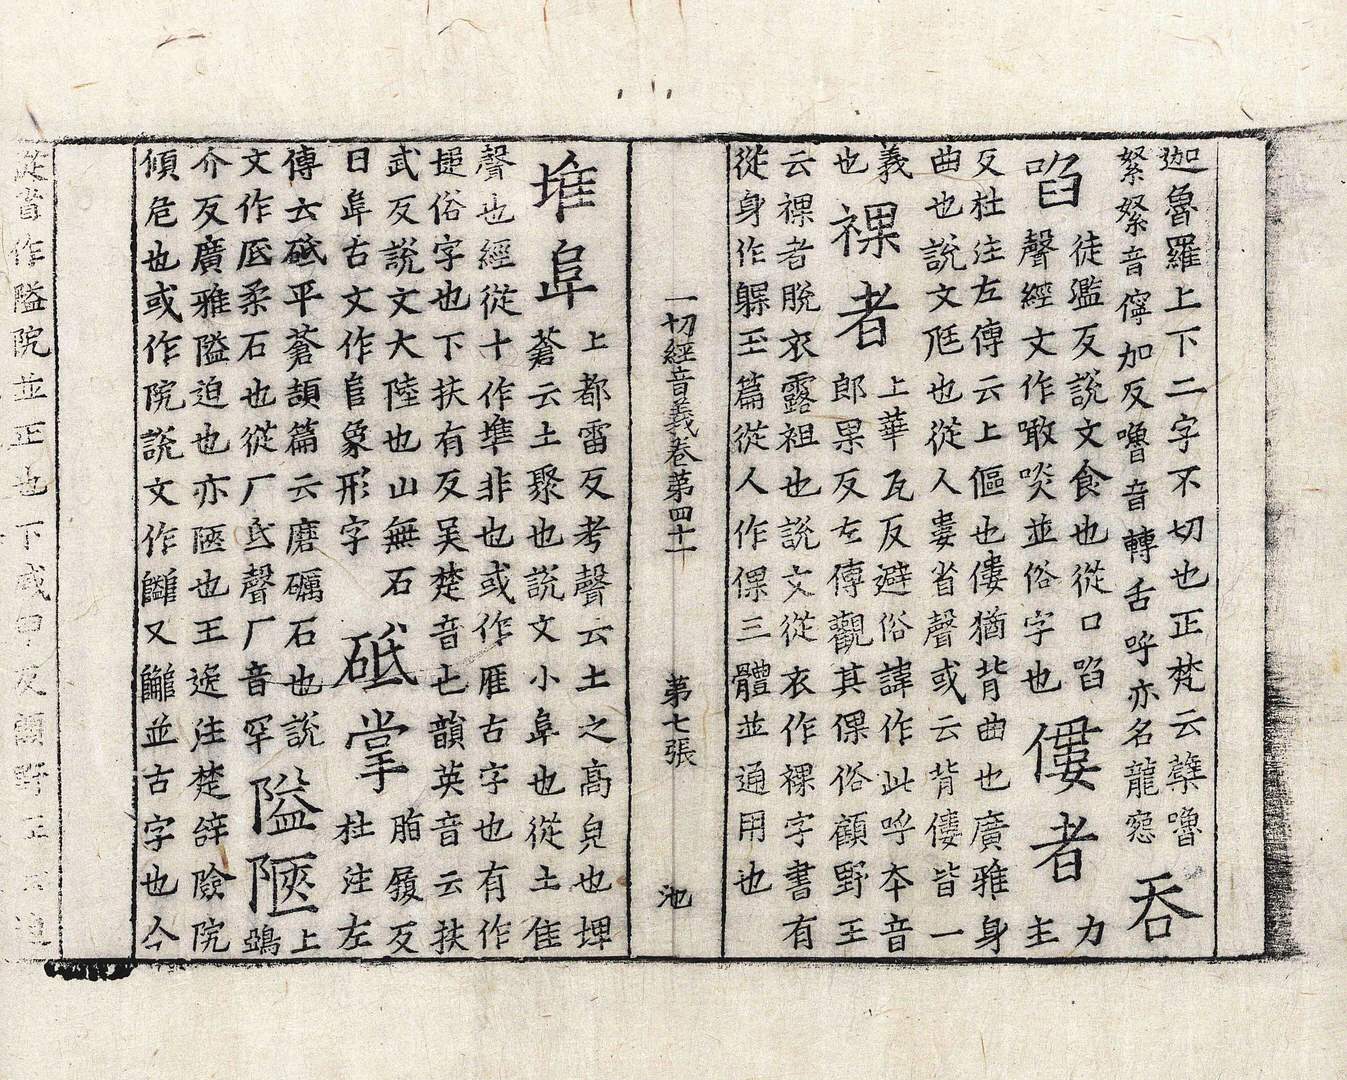 迦魯羅上下二字不切也正梵云櫱嚕
䋈䋈音儜加反嚕音轉舌呼亦名龍𢙣
吞
啗
徒濫反說文食也從口臽
聲經文作噉啖並俗字也
僂者
力
主
反杜注左傳云上傴也僂猶背曲也廣雅身
曲也說文尫也從人婁省聲或云背僂皆一
義
也
裸者
上華瓦反避俗諱作此呼本音
郎果反左傳觀其倮俗顧野王
云裸者脫衣露袒也說文從衣作裸字書有
從身作躶玉篇從人作倮三體並通用也
一切經音義卷第四十一
第七張
池
堆阜
上都雷反考聲云土之高皃也埤
蒼云土聚也說文小阜也從土隹
聲也經從十作塠非也或作𨾦古字也有作
𡎺俗字也下扶有反吴楚音也韻英音云扶
武反說文大陸也山無石
曰阜古文作𨸏象形字
砥掌
脂履反
杜注左
傳云砥平蒼頡篇云磨礪石也說
文作厎柔石也從厂氐聲厂音罕
隘陿
上
鷃
介反廣雅隘迫也亦陿也王逸注楚辭險阨
傾危也或作阨說文作𨽾又𨽿並古字也今
從省作隘阨並正也下咸甲反顧野王云道